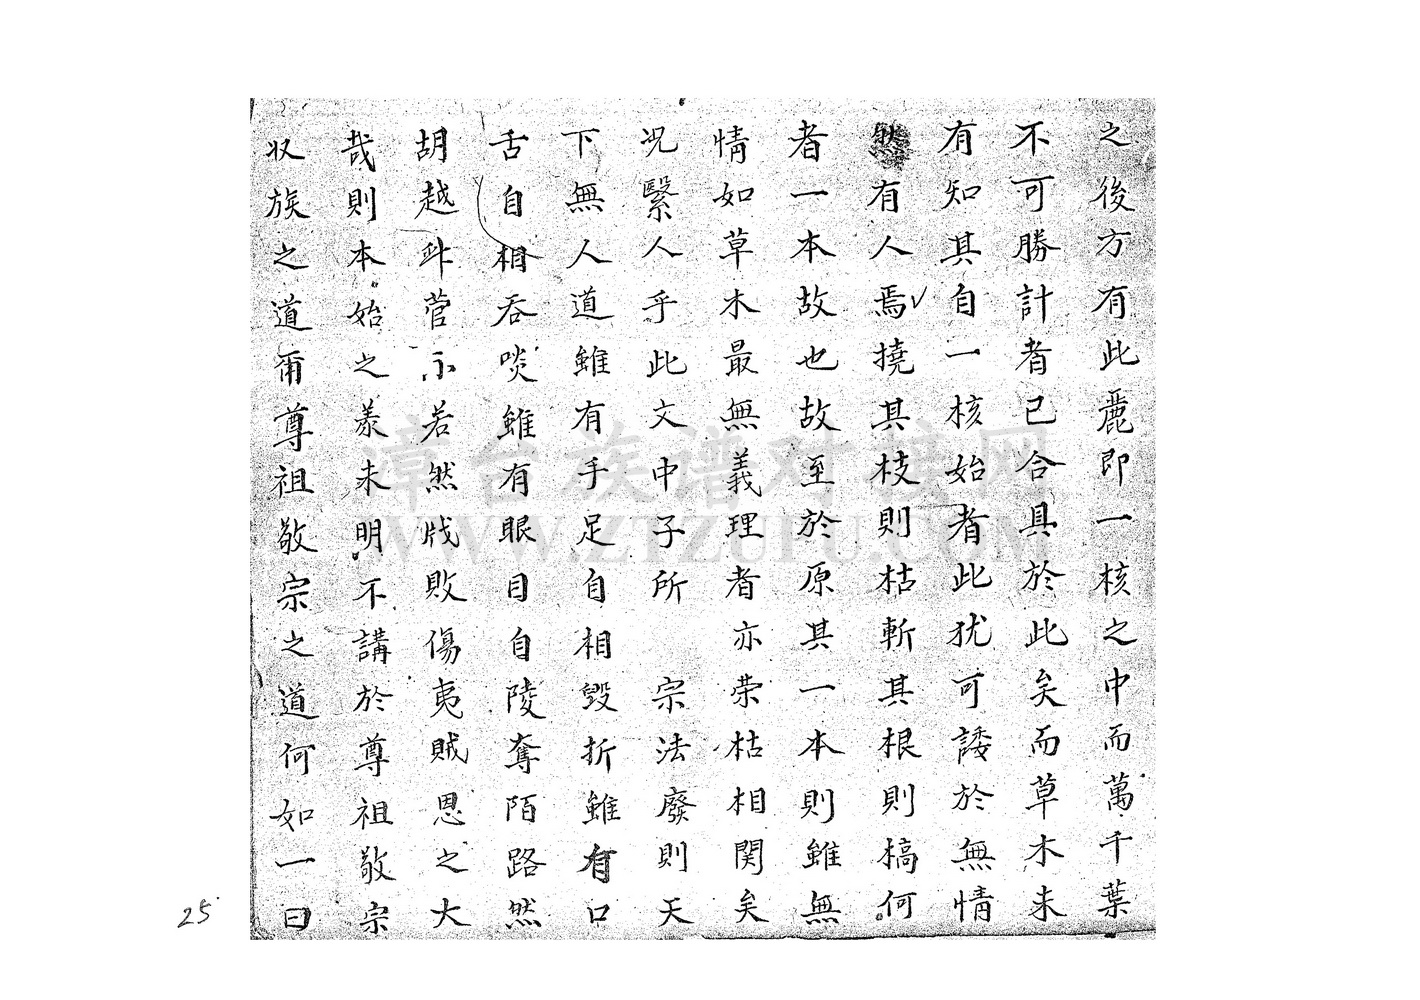 之後方有此麗即一核之中而萬千葉
不可勝計者已合具於此矣而草木未
有知其自一核始者此犹可諉於無情
然有人焉撓其枝則枯斬其根則槁何
者一本故也故至於原其一本則雖無
情如草木最無義理者亦荣枯相関矣
况繄人乎此文中子所 宗法廢則天
下無人道雖有手足自相毀折雖有口
舌自相吞啖雖有眼目自陵奪陌路然
胡越非菅不若然戕敗傷夷賊恩之大
哉則本始之義未明不講於尊祖敬宗
収族之道爾尊祖敬宗之道何如一曰
25
漳台族谱对接网
WWW.ZTZUPU.COM